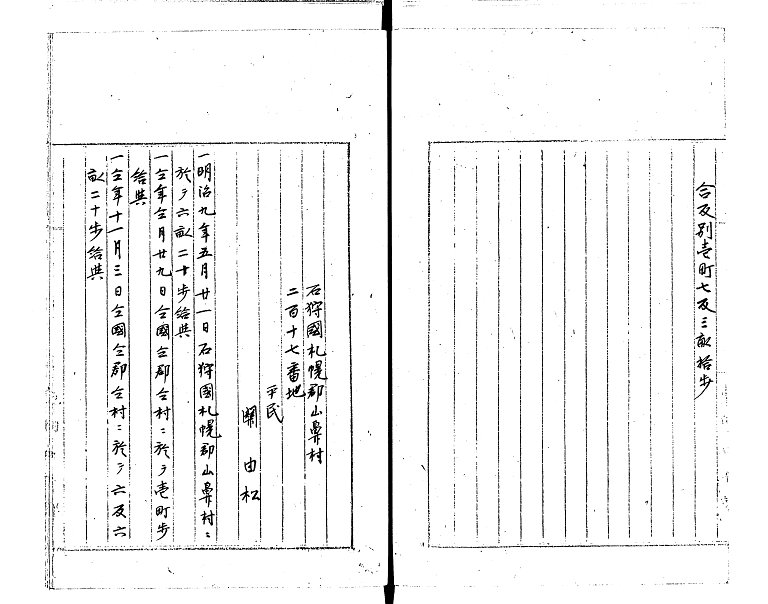 合反別壱町七反三畝拾歩
石狩國札幌郡山鼻村
二百十七番地
平民
関由松
一明治九年五月廿一日石狩國札幌郡山鼻村ニ
於テ六畝二十歩給與
一仝年仝月廿九日仝國仝郡仝村ニ於テ壱町歩
給與
一仝年十一月三日仝國仝郡仝村ニ於テ六反六
畝二十歩給與